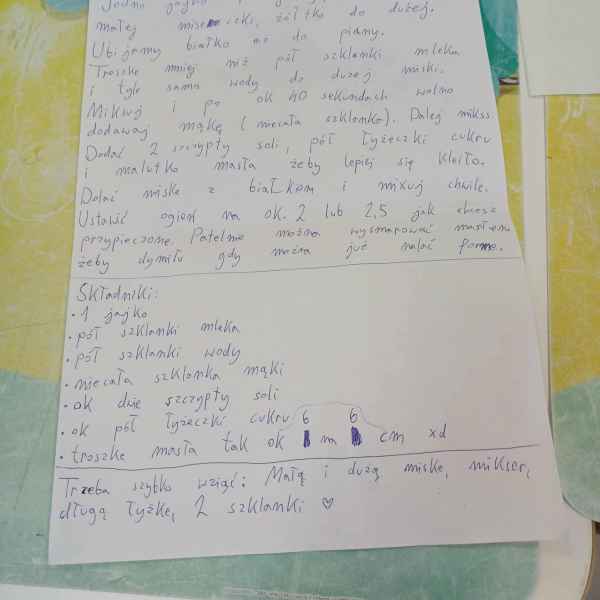 Jedno jajko
małej miseczki, żółtko do dużej.
Ubijamy białko aż do piany.
Troszkę mniej niż pół szklanki mleka
i tyle samo wody do dużej miski.
Miksuj i po ok 40 sekundach wolno
dodawaj mąkę (niecała szklanka). Dalej mikss.
Dodać 2 szczypty soli, pół łyżeczki cukru
i malutko masła żeby lepiej się kleiło.
Dolać miskę z białkem i mixuj chwilę.
Ustawić ogień na ok. 2 lub 2,5 jak chcesz
przypieczone. Patelnię można wysmarować masłem
żeby dymiło gdy można już nalać formę.
Składniki:
• 1 jajko
• pół szklanki mleka
• pół szklanki wody
• niecała szklanka mąki
• ok dwie szczypty soli
• ok pół łyżeczki cukru
6 6
• troszkę masła tak ok na cm xd
Trzeba szybko wziąć: Małą i dużą miskę, mikser,
długą łyżkę, 2 szklanki ♡